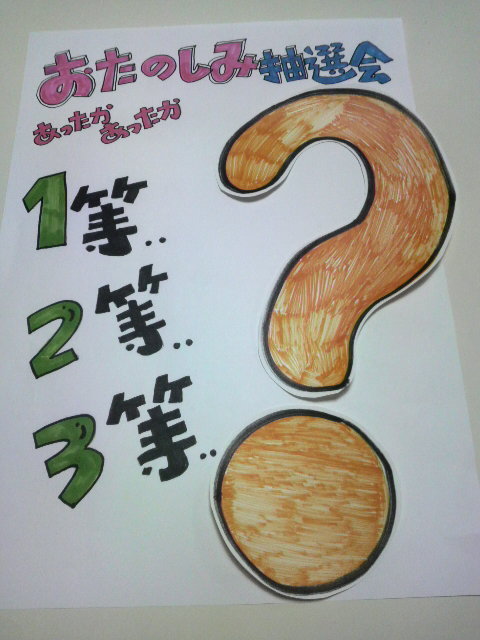 おたのしみ抽選会
あったか あったか
1等..
2等..
3等..
?